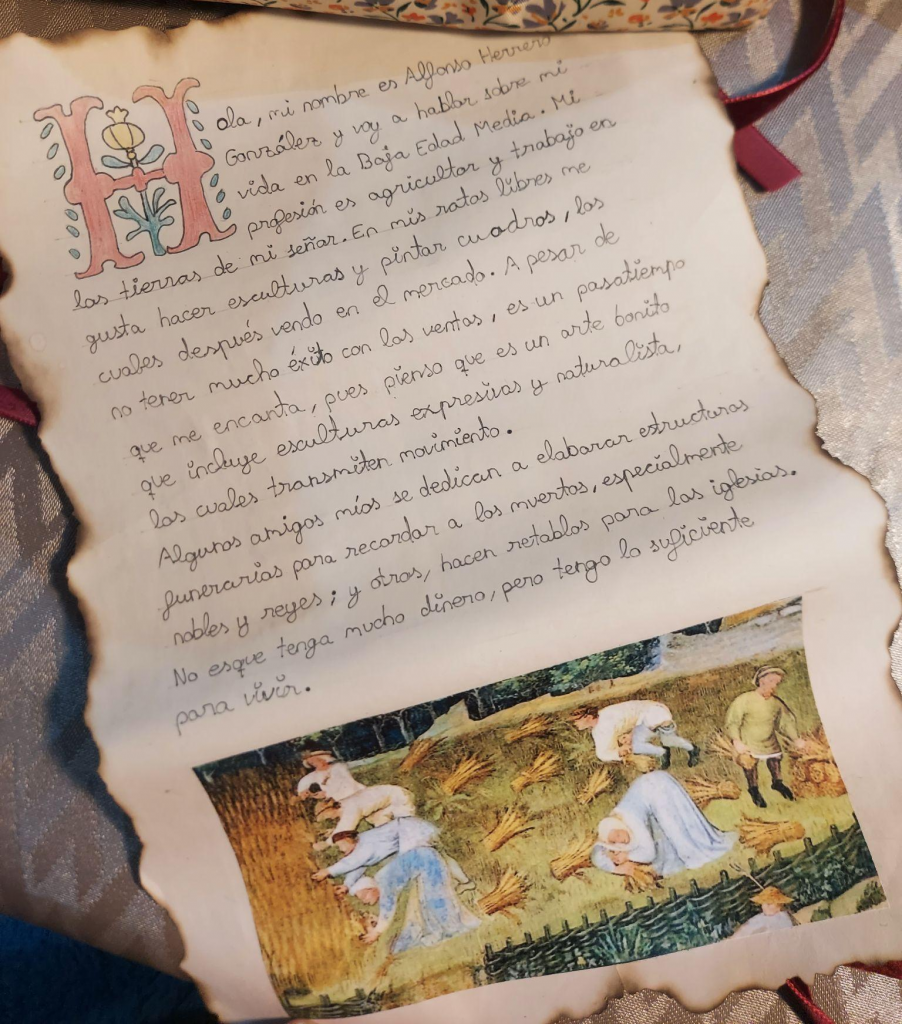 Hola, mi nombre es Alfonso Herrero
González y voy a hablar sobre mi
vida en la Baja Edad Media. Mi
profesión es agricultor y trabajo en
las tierras de mi señor. En mis ratos libres me
gusta hacer esculturas y pintar cuadros, los
cuales después vendo en el mercado. A pesar de
no tener mucho éxito con las ventas, es un pasatiempo
que me encanta, pues pienso que es un arte bonito
que incluye esculturas expresivas y naturalista,
las cuales transmiten movimiento.
Algunos amigos míos se dedican a elaborar estructuras
funerarias para recordar a los muertos, especialmente
nobles y reyes; y otros, hacen retablos para las iglesias.
No esque tenga mucho dinero, pero tengo lo suficiente
para vivir.